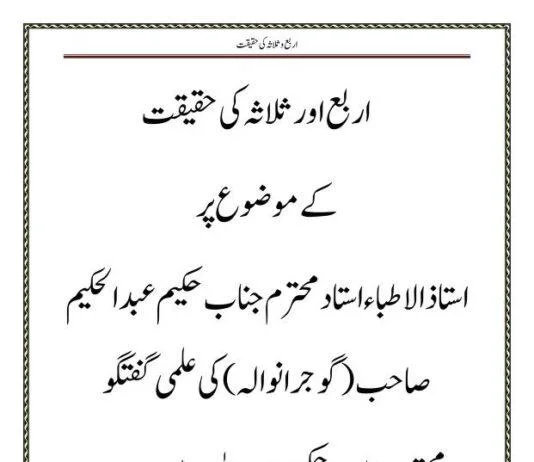 اربع و ثلاثہ کی حقیقت
اربع اور ثلاثہ کی حقیقت
کے موضوع پر
استاذ الاطباء استاد محترم جناب حکیم عبد الحکیم
صاحب (گوجرانوالہ) کی علمی گفتگو